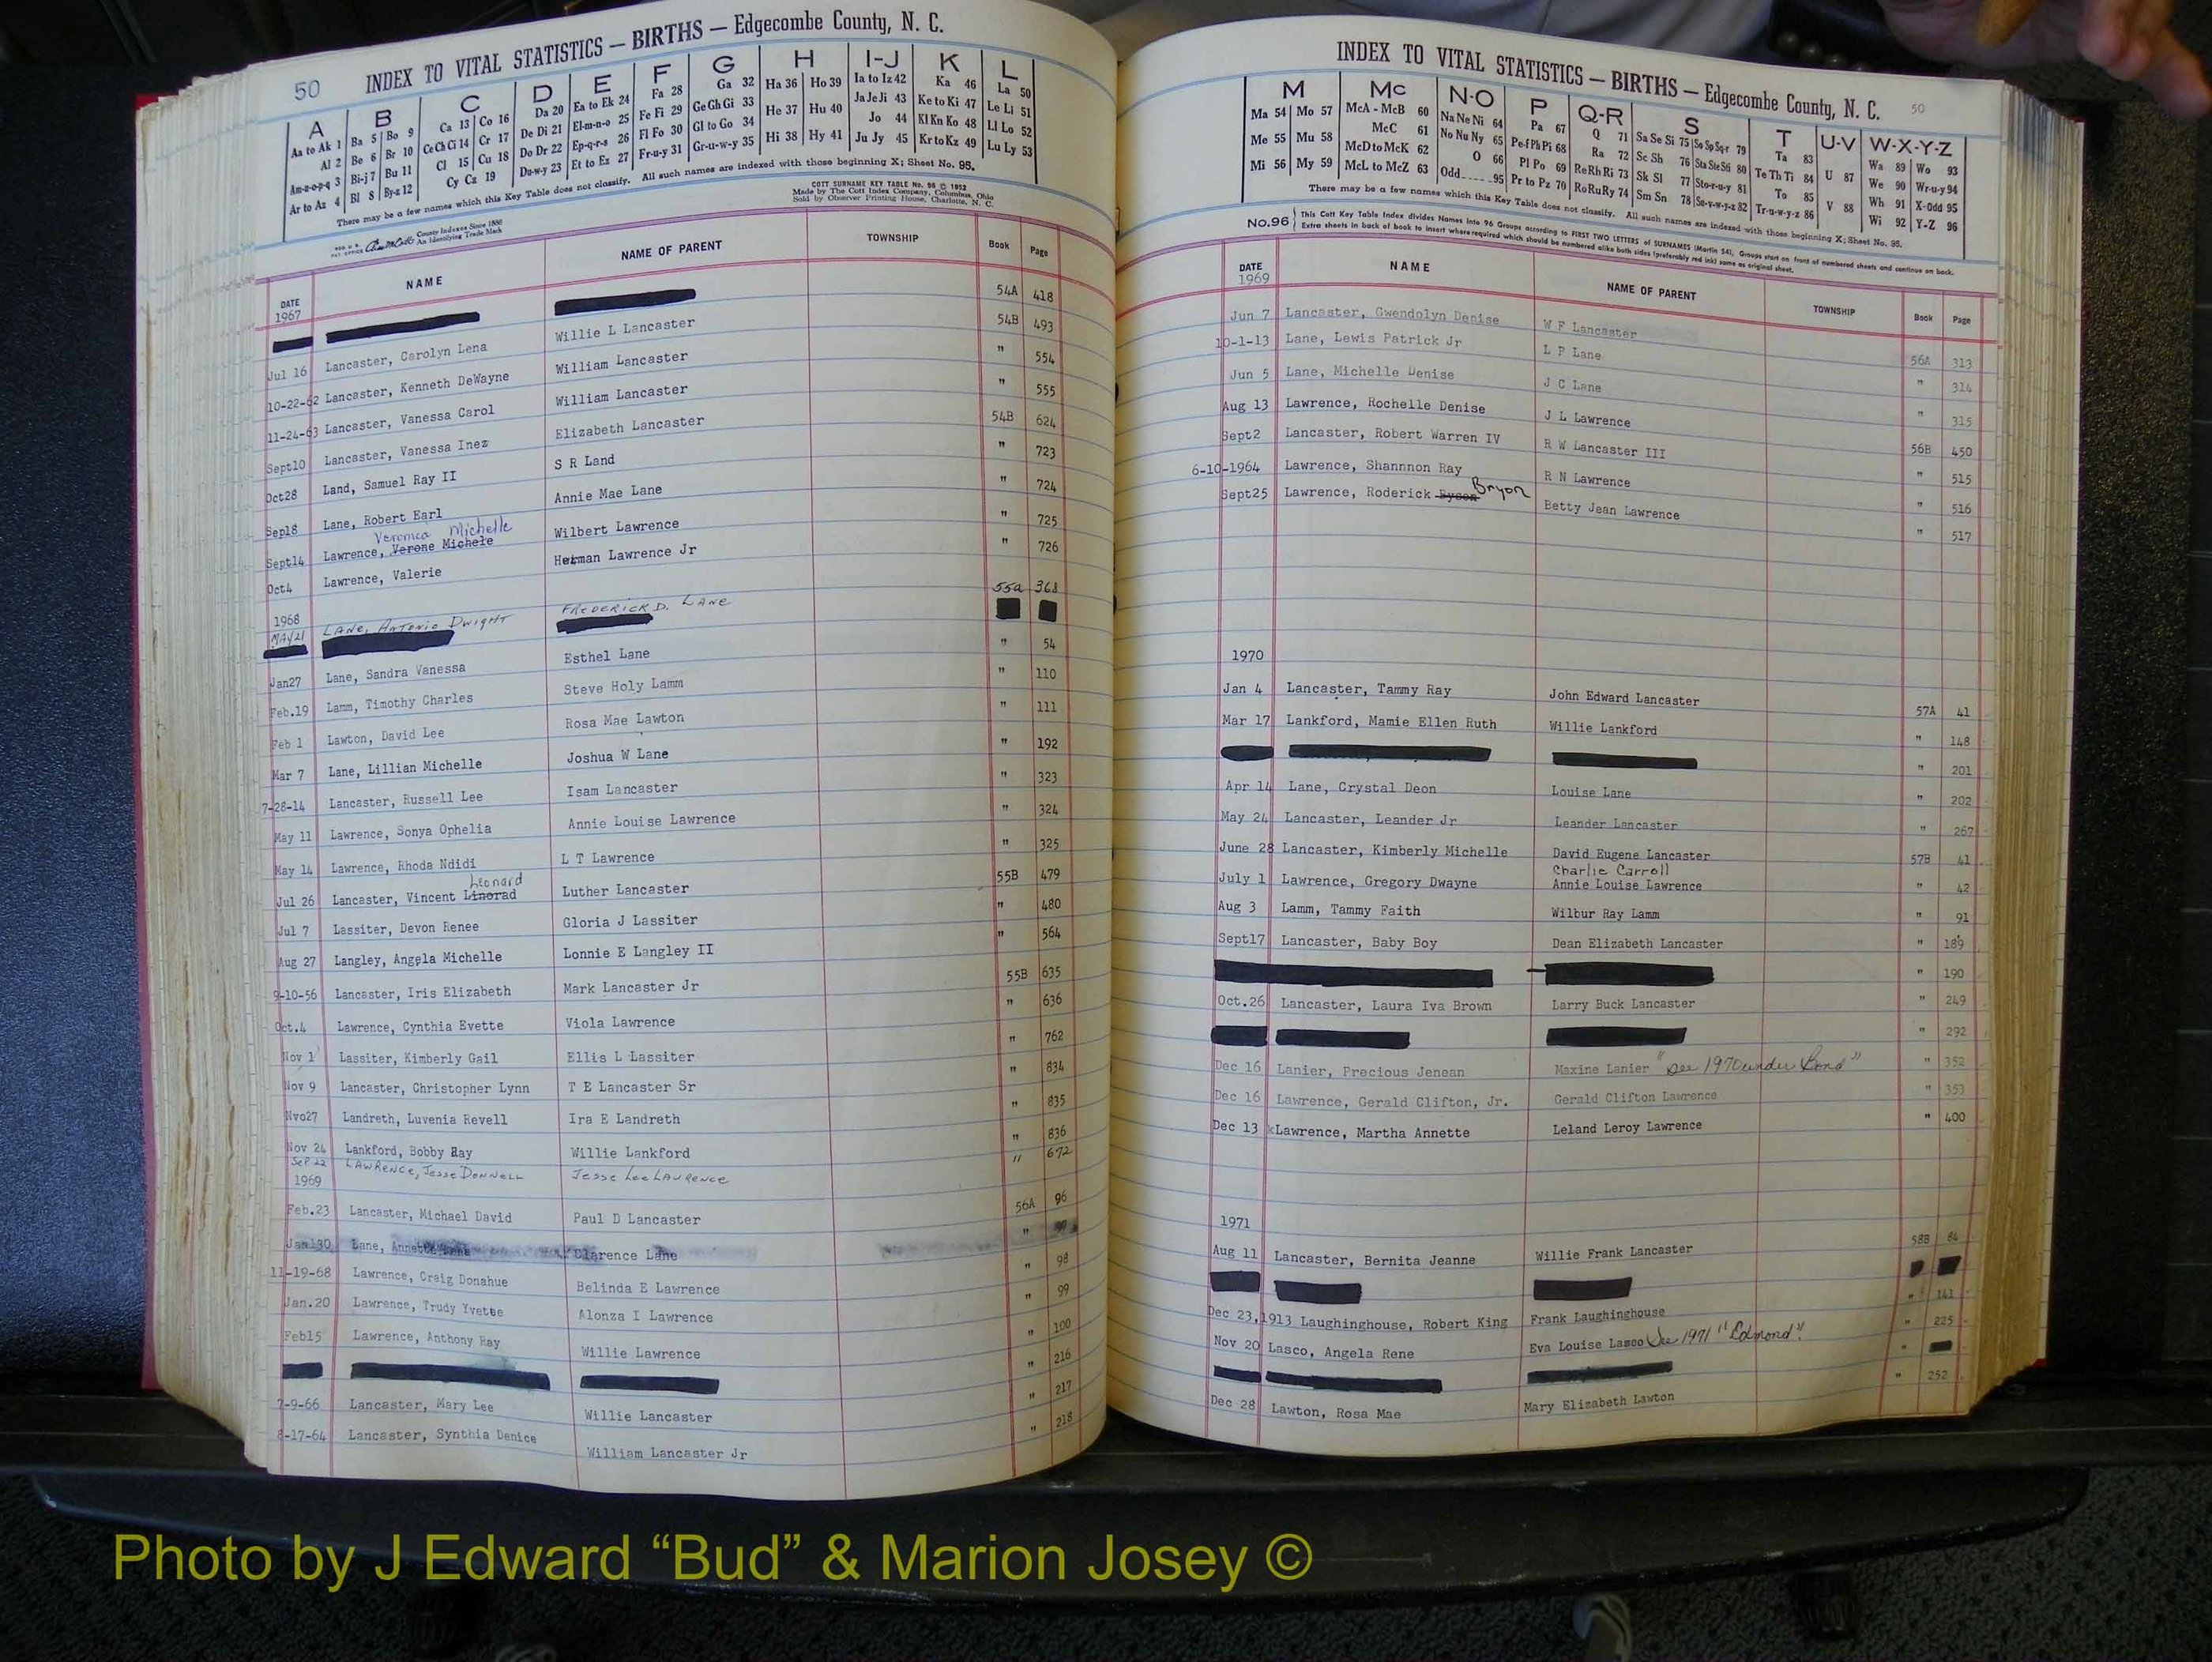 50 INDEX TO VITAL STATISTICS — BIRTHS — Edgecombe County, N. C.
A B C D E F G H I-J K L
Aa to Ak 1 Ba 5 Bo 9 Ca 13 Co 16 Da 20 Ea to Ek 24 Fa 28 Ga 32 Ha 36 Ho 39 Ia to Iz 42 Ka 46 La 50
Al 2 Be 6 Br 10 Ce Ch Ci 14 Cr 17 De Di 21 El-m-n-o 25 Fe Fi 29 Ge Gh Gi 33 He 37 Hu 40 Ja Je Ji 43 Ke to Ki 47 Le Li 51
Am-n-o-p-q 3 Bi-j 7 Bu 11 Cl 15 Cu 18 Do Dr 22 Ep-q-r-s 26 Fl Fo 30 Gl to Go 34 Hi 38 Hy 41 Jo 44 Kl Kn Ko 48 Ll Lo 52
Ar to Az 4 Bl 8 By-z 12 Cy Cz 19 Du-w-y 23 Et to Ez 27 Fr-u-y 31 Gr-u-w-y 35 Ju Jy 45 Kr to Kz 49 Lu Ly 53
There may be a few names which this Key Table does not classify. All such names are indexed with those beginning X; Sheet No. 95.
COTT SURNAME KEY TABLE No. 96 © 1952
Made by The Cott Index Company, Columbus, Ohio
Sold by Observer Printing House, Charlotte, N. C.
County Indexes Since 1888
An Identifying Trade Mark
DATE NAME NAME OF PARENT TOWNSHIP Book Page
1967
54A 418
Jul 16 Lancaster, Carolyn Lena Willie L Lancaster 54B 493
10-22-62 Lancaster, Kenneth DeWayne William Lancaster " 554
11-24-63 Lancaster, Vanessa Carol William Lancaster " 555
Sept10 Lancaster, Vanessa Inez Elizabeth Lancaster 54B 624
Oct28 Land, Samuel Ray II S R Land " 723
Sep18 Lane, Robert Earl Annie Mae Lane " 724
Veronica Michelle
Sept14 Lawrence, Verone Michele Wilbert Lawrence " 725
Oct4 Lawrence, Valerie Herman Lawrence Jr " 726
1968
MAY 21 LANE, Antonio Dwight FREDERICK D. LANE 55a 368
Jan27 Lane, Sandra Vanessa Esthel Lane " 54
Feb.19 Lamm, Timothy Charles Steve Holy Lamm " 110
Feb 1 Lawton, David Lee Rosa Mae Lawton " 111
Mar 7 Lane, Lillian Michelle Joshua W Lane " 192
7-28-14 Lancaster, Russell Lee Isam Lancaster " 323
May 11 Lawrence, Sonya Ophelia Annie Louise Lawrence " 324
May 14 Lawrence, Rhoda Ndidi L T Lawrence " 325
Leonard
Jul 26 Lancaster, Vincent Linorad Luther Lancaster 55B 479
Jul 7 Lassiter, Devon Renee Gloria J Lassiter " 480
Aug 27 Langley, Angela Michelle Lonnie E Langley II " 564
9-10-56 Lancaster, Iris Elizabeth Mark Lancaster Jr 55B 635
Oct.4 Lawrence, Cynthia Evette Viola Lawrence " 636
Nov 1 Lassiter, Kimberly Gail Ellis L Lassiter " 762
Nov 9 Lancaster, Christopher Lynn T E Lancaster Sr " 834
Nvo27 Landreth, Luvenia Revell Ira E Landreth " 835
Nov 24 Lankford, Bobby Ray Willie Lankford " 836
Sep 22 LAWRENCE, Jesse DONNELL Jesse Lee LAWRENCE " 672
1969
Feb.23 Lancaster, Michael David Paul D Lancaster 56A 96
Jan30 Lane, Annette Clarence Lane "
11-19-68 Lawrence, Craig Donahue Belinda E Lawrence " 98
Jan.20 Lawrence, Trudy Yvette Alonza I Lawrence " 99
Feb15 Lawrence, Anthony Ray Willie Lawrence " 100
" 216
7-9-66 Lancaster, Mary Lee Willie Lancaster " 217
8-17-64 Lancaster, Synthia Denice William Lancaster Jr " 218
INDEX TO VITAL STATISTICS — BIRTHS — Edgecombe County, N. C. 50
M Mc N-O P Q-R S T U-V W-X-Y-Z
Ma 54 Mo 57 McA - McB 60 Na Ne Ni 64 Pa 67 Q 71 Sa Se Si 75 So Sp Sq-r 79 Ta 83 U 87 Wa 89 Wo 93
Me 55 Mu 58 McC 61 No Nu Ny 65 Pe-f Ph Pi 68 Ra 72 Sc Sh 76 Sta Ste Sti 80 Te Th Ti 84 We 90 Wr-u-y 94
Mi 56 My 59 McD to McK 62 O 66 Pl Po 69 Re Rh Ri 73 Sk Sl 77 Sto-r-u-y 81 To 85 V 88 Wh 91 X-Odd 95
McL to McZ 63 Odd 95 Pr to Pz 70 Ro Ru Ry 74 Sm Sn 78 Su-v-w-y-z 82 Tr-u-w-y-z 86 Wi 92 Y-Z 96
There may be a few names which this Key Table does not classify. All such names are indexed with those beginning X; Sheet No. 95.
No.96 This Cott Key Table Index divides Names into 96 Groups according to FIRST TWO LETTERS of SURNAMES (Martin 54). Groups start on front of numbered sheets and continue on back.
Extra sheets in back of book to insert where required which should be numbered alike both sides (preferably red ink) same as original sheet.
DATE NAME NAME OF PARENT TOWNSHIP Book Page
1969
Jun 7 Lancaster, Gwendolyn Denise W F Lancaster 56A 313
10-1-13 Lane, Lewis Patrick Jr L P Lane " 314
Jun 5 Lane, Michelle Denise J C Lane " 315
Aug 13 Lawrence, Rochelle Denise J L Lawrence 56B 450
Sept2 Lancaster, Robert Warren IV R W Lancaster III " 515
6-10-1964 Lawrence, Shannnon Ray R N Lawrence " 516
Sept25 Lawrence, Roderick Bryon Betty Jean Lawrence " 517
1970
Jan 4 Lancaster, Tammy Ray John Edward Lancaster 57A 41
Mar 17 Lankford, Mamie Ellen Ruth Willie Lankford " 148
" 201
Apr 14 Lane, Crystal Deon Louise Lane " 202
May 24 Lancaster, Leander Jr Leander Lancaster " 267
June 28 Lancaster, Kimberly Michelle David Eugene Lancaster 57B 41
Charlie Carroll
July 1 Lawrence, Gregory Dwayne Annie Louise Lawrence " 42
Aug 3 Lamm, Tammy Faith Wilbur Ray Lamm " 91
Sept17 Lancaster, Baby Boy Dean Elizabeth Lancaster " 189
" 190
Oct.26 Lancaster, Laura Iva Brown Larry Buck Lancaster " 249
" 292
Dec 16 Lanier, Precious Jenean Maxine Lanier "See 1970 under Bond" " 352
Dec 16 Lawrence, Gerald Clifton, Jr. Gerald Clifton Lawrence " 353
Dec 13 Lawrence, Martha Annette Leland Leroy Lawrence " 400
1971
Aug 11 Lancaster, Bernita Jeanne Willie Frank Lancaster 58B 84
Dec 23,1913 Laughinghouse, Robert King Frank Laughinghouse " 141
Nov 20 Lasco, Angela Rene Eva Louise Lasco See 1971 "Edmond" " 225
"
Dec 28 Lawton, Rosa Mae Mary Elizabeth Lawton " 252
Photo by J Edward “Bud” & Marion Josey ©